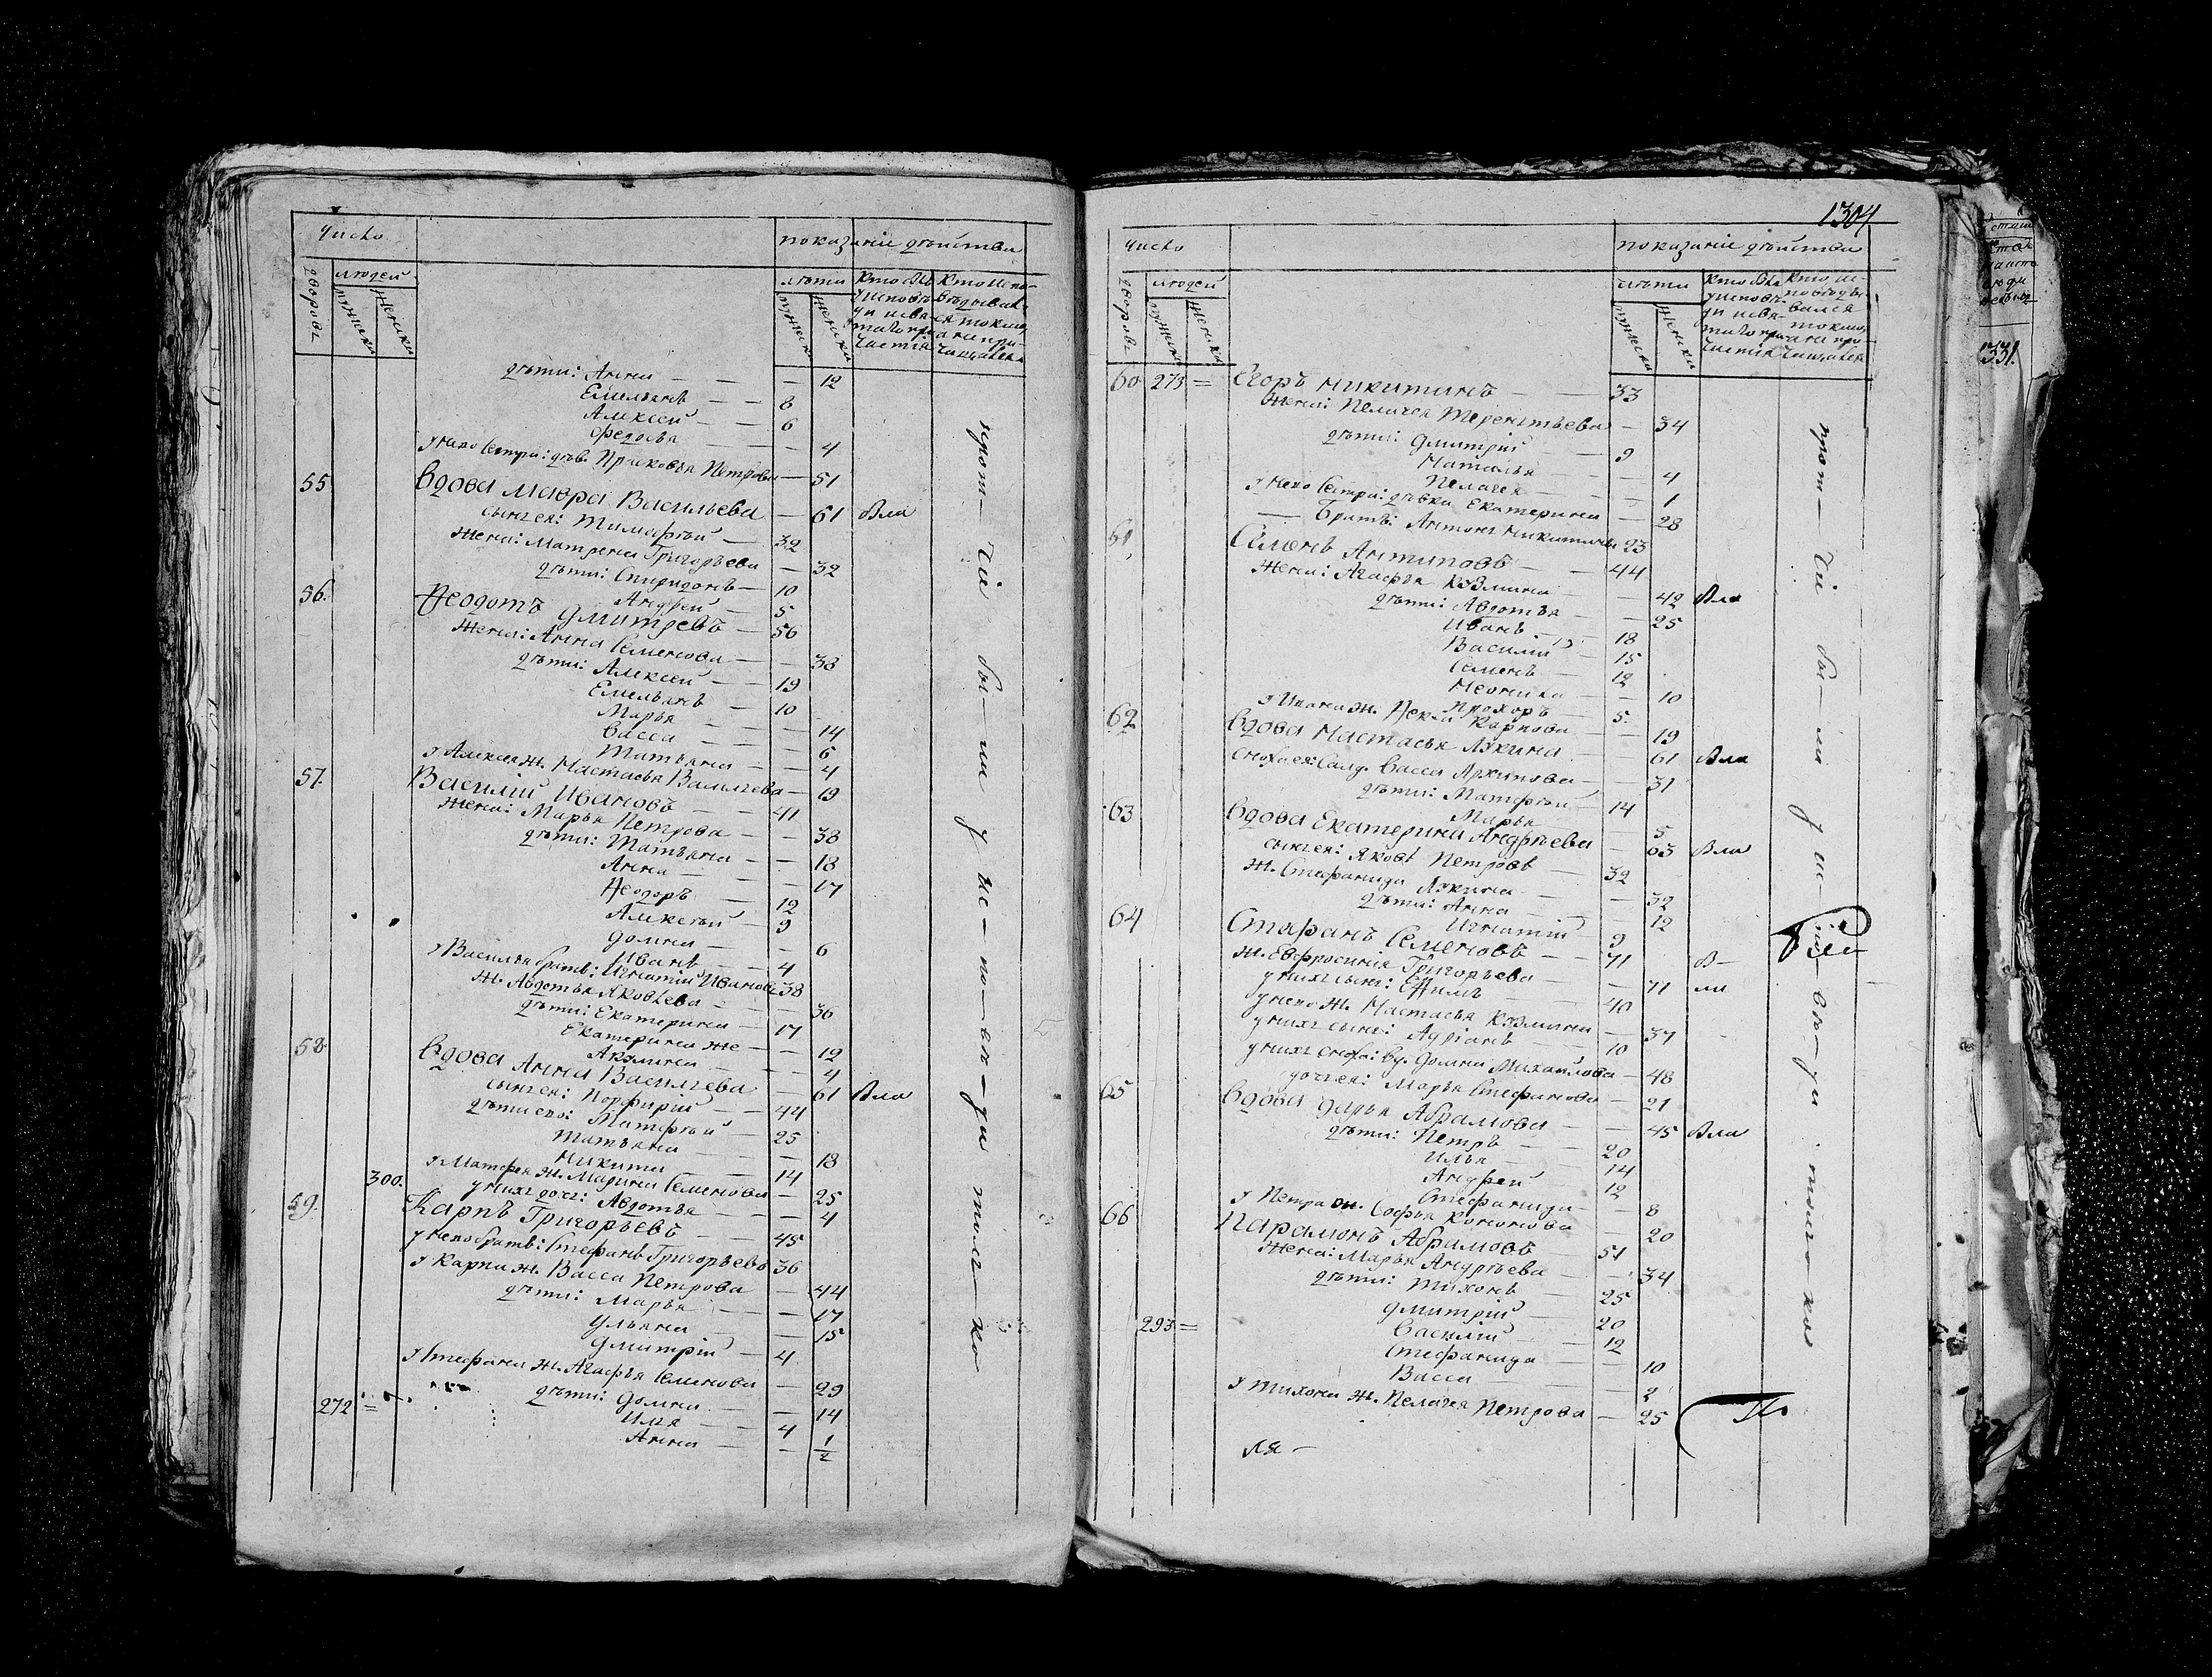 Число
показаніе дѣйства
дворовъ
людей
мужеска
женска
лѣты
мужеска
женска
дѣти: Анна — — — 12
Емельянъ — — 8
Алексей — — 6
Федосья — — — 4
у него сестра: дѣв. Прасковья Петрова — 51
55 Вдова Мавра Васильева — 61 была
сынъ ея: Тимофѣй — 32
жена: Матрена Григорьева — 32
дѣти: Спиридонъ — 10
Андрей — 5
56. Ѳеодотъ Дмитревъ — 56
жена: Анна Семенова — — 38
дѣти: Алексей — — 19
Емельянъ — 10
Марья — — — 14
Васса — — — 6
Татьяна — — 4
у Алексея ж. Настасья Василева — 19
57. Василій Ивановъ — — 41
жена: Марья Петрова — — 38
дѣти: Татьяна — — 18
Анна — — — 17
Ѳеодоръ — 12
Алексѣй — 9
Домна — — 6
Иванъ — — 4
у Василья братъ: Игнатій Ивановъ 38
ж. Авдотья Яковлева — — 36
дѣти: Екатерина — 17
Екатерина же — — 12
Акулина — — — 4
58 Вдова Анна Василева — 61 была
сынъ ея: Порфирій — — 44
дѣти его: Матфѣй — 25
Татьяна — — — 18
Никита — — 14
у Матфея ж. Марина Семенова — 25
300. у нихъ дочь: Авдотья — — 4
59. Карпъ Григорьевъ — — 45
у него братъ: Стефанъ Григорьевъ 36
у Карпа ж. Васса Петрова — 44
дѣти: Марья — — — 17
Ульяна — — 15
Дмитрій — 4
у Стефана ж. Агафья Семенова — 29
дѣти: Домна — — 14
272 = Илья — — 4
Анна — — 1/2
прот — чіи бы — ли у ис — по — вѣ — ди тол — ко
1304
Число
показаніе дѣйства
дворовъ
людей
мужеска
женска
лѣты
мужеска
женска
60 273 = Егоръ Никитинъ — — 33
жена: Пелагея Терентьева — 34
дѣти: Дмитрій — 9
Наталья — — 4
Пелагея — — 1
у него сестра: дѣвка Екатерина — 28
— братъ: Антонъ Никитинъ 23
61 Семенъ Антиповъ — — 44
жена: Агафья Козмина — — 42 была
дѣти: Авдотья — — 25
Иванъ — — 18
Василій — 15
Семенъ — 12
Неонила — — 10
Прохоръ — 5
у Ивана ж. Карпова — — 19
62 Вдова Настасья Лукина — 61 была
сноха ея: салд. Васса Архипова — 31
дѣти: Матфѣй — 14
Марья — 5
63 Вдова Екатерина Андрѣева — 63 была
сынъ ея: Яковъ Петровъ — 32
ж. Стефанида Лукина — — 32
дѣти: Анна — — 12
Игнатій — 9
64 Стефанъ Семеновъ — — 71 бы-
ж. Евфросинія Григорьева — 71 ли
у нихъ сынъ: Ефимъ — 40
у него ж. Настасья Козмина — 37
у нихъ сынъ: Адріанъ — 10
у нихъ сноха: вд. Домна Михайлова — 48
дочь ея: Марья Стефанова — 21
65 Вдова Дарья Абрамова — — 45 была
дѣти: Петръ — — 20
Илья — — 14
Андрей — 12
Стефанида — — 8
у Петра ж. Софья Кононова — 20
66 Парамонъ Абрамовъ — 51
жена: Марья Андрѣева — — 34
дѣти: Тихонъ — 25
Дмитрій — 20
293 = Василій — 12
Стефанида — — 10
Васса — — 2
у Тихона ж. Пелагея Петрова — 25
прот — чіи бы — ли у ис — по — вѣ — ди толь — ко
331.